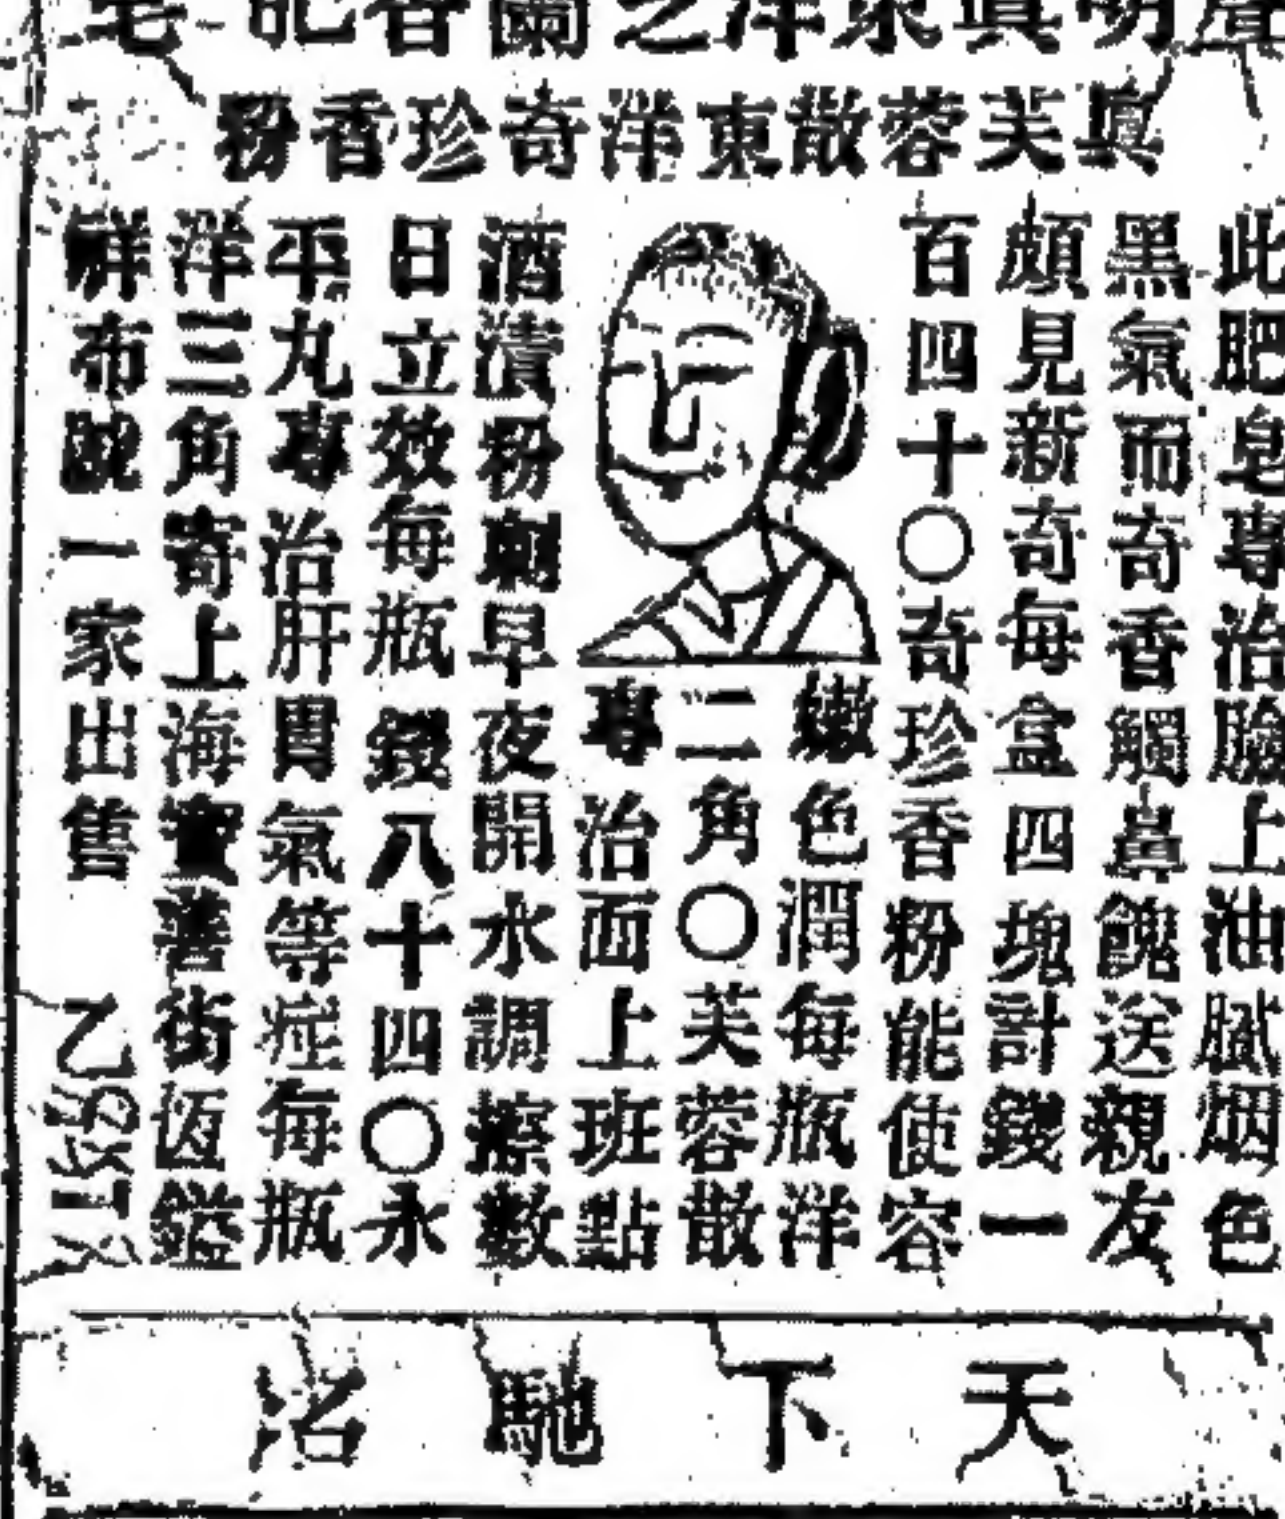 聲明真東洋之蘭香肥皂
眞芙蓉散東洋奇珍香粉
此肥皂專治臉上油膩烟色
黑氣而奇香觸鼻餽送親友
頗見新奇每盒四塊計錢一
百四十〇奇珍香粉能使容
嫩色潤每瓶洋
二角〇芙蓉散
專治面上班點
酒漬粉刺早夜開水調擦數
日立效每瓶錢八十四〇永
平丸專治肝胃氣等症每瓶
洋三角寄上海寶善街恆鎰
祥布號一家出售
天下馳